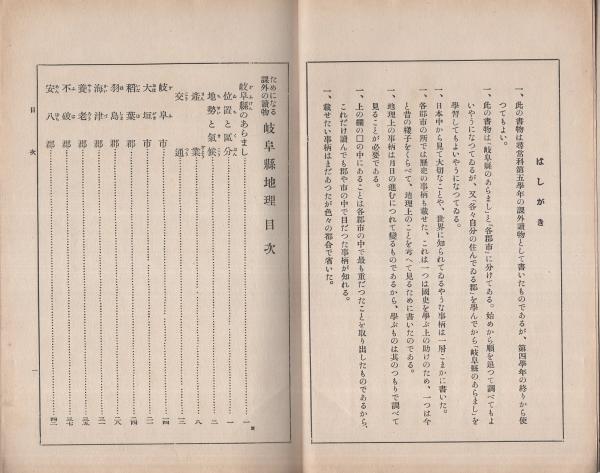 はしがき
一、此の書物は尋常科第五學年の課外讀物として書いたものであるが、第四學年の終りから使
つてもよい。
一、此の書物は「岐阜縣のあらまし」と「各郡市」に分けてある。始めから順を追つて調べてもよ
いやうになつてゐるが、又「各々自分の住んでゐる郡」を學んでから「岐阜縣のあらまし」を
學習してもよいやうになつてゐる。
一、日本中から見て大切なことや、世界に知られてゐるやうな事柄は一層こまかに書いた。
一、各郡市の所では歴史の事柄も載せた、これは一つは國史を學ぶ上の助けのため、一つは今
と昔の樣子をくらべて、地理上のことを考へて見るために書いたのである。
一、地理上の事柄は月日の進むにつれて變るものであるから、學ぶものは其のつもりで調べて
見ることが必要である。
一、上の欄の囗の中にあることは各郡市の中で最も重だつたことを取り出したものであるから、
これだけ讀んでも郡や市の中で目だつた事柄が知れる。
一、載せたい事柄はまだあつたが色々の都合で省いた。
ためになる
課外の讀物
岐阜縣地理 目次
岐阜縣のあらまし
位置と區分 一
地勢と氣候 二
産業 八
交通 三
岐阜市 一四
大垣市 一
稻葉郡 二
羽島郡 一八
海津郡 三一
養老郡 二九
不破郡 三七
安八郡 四二
目次
一